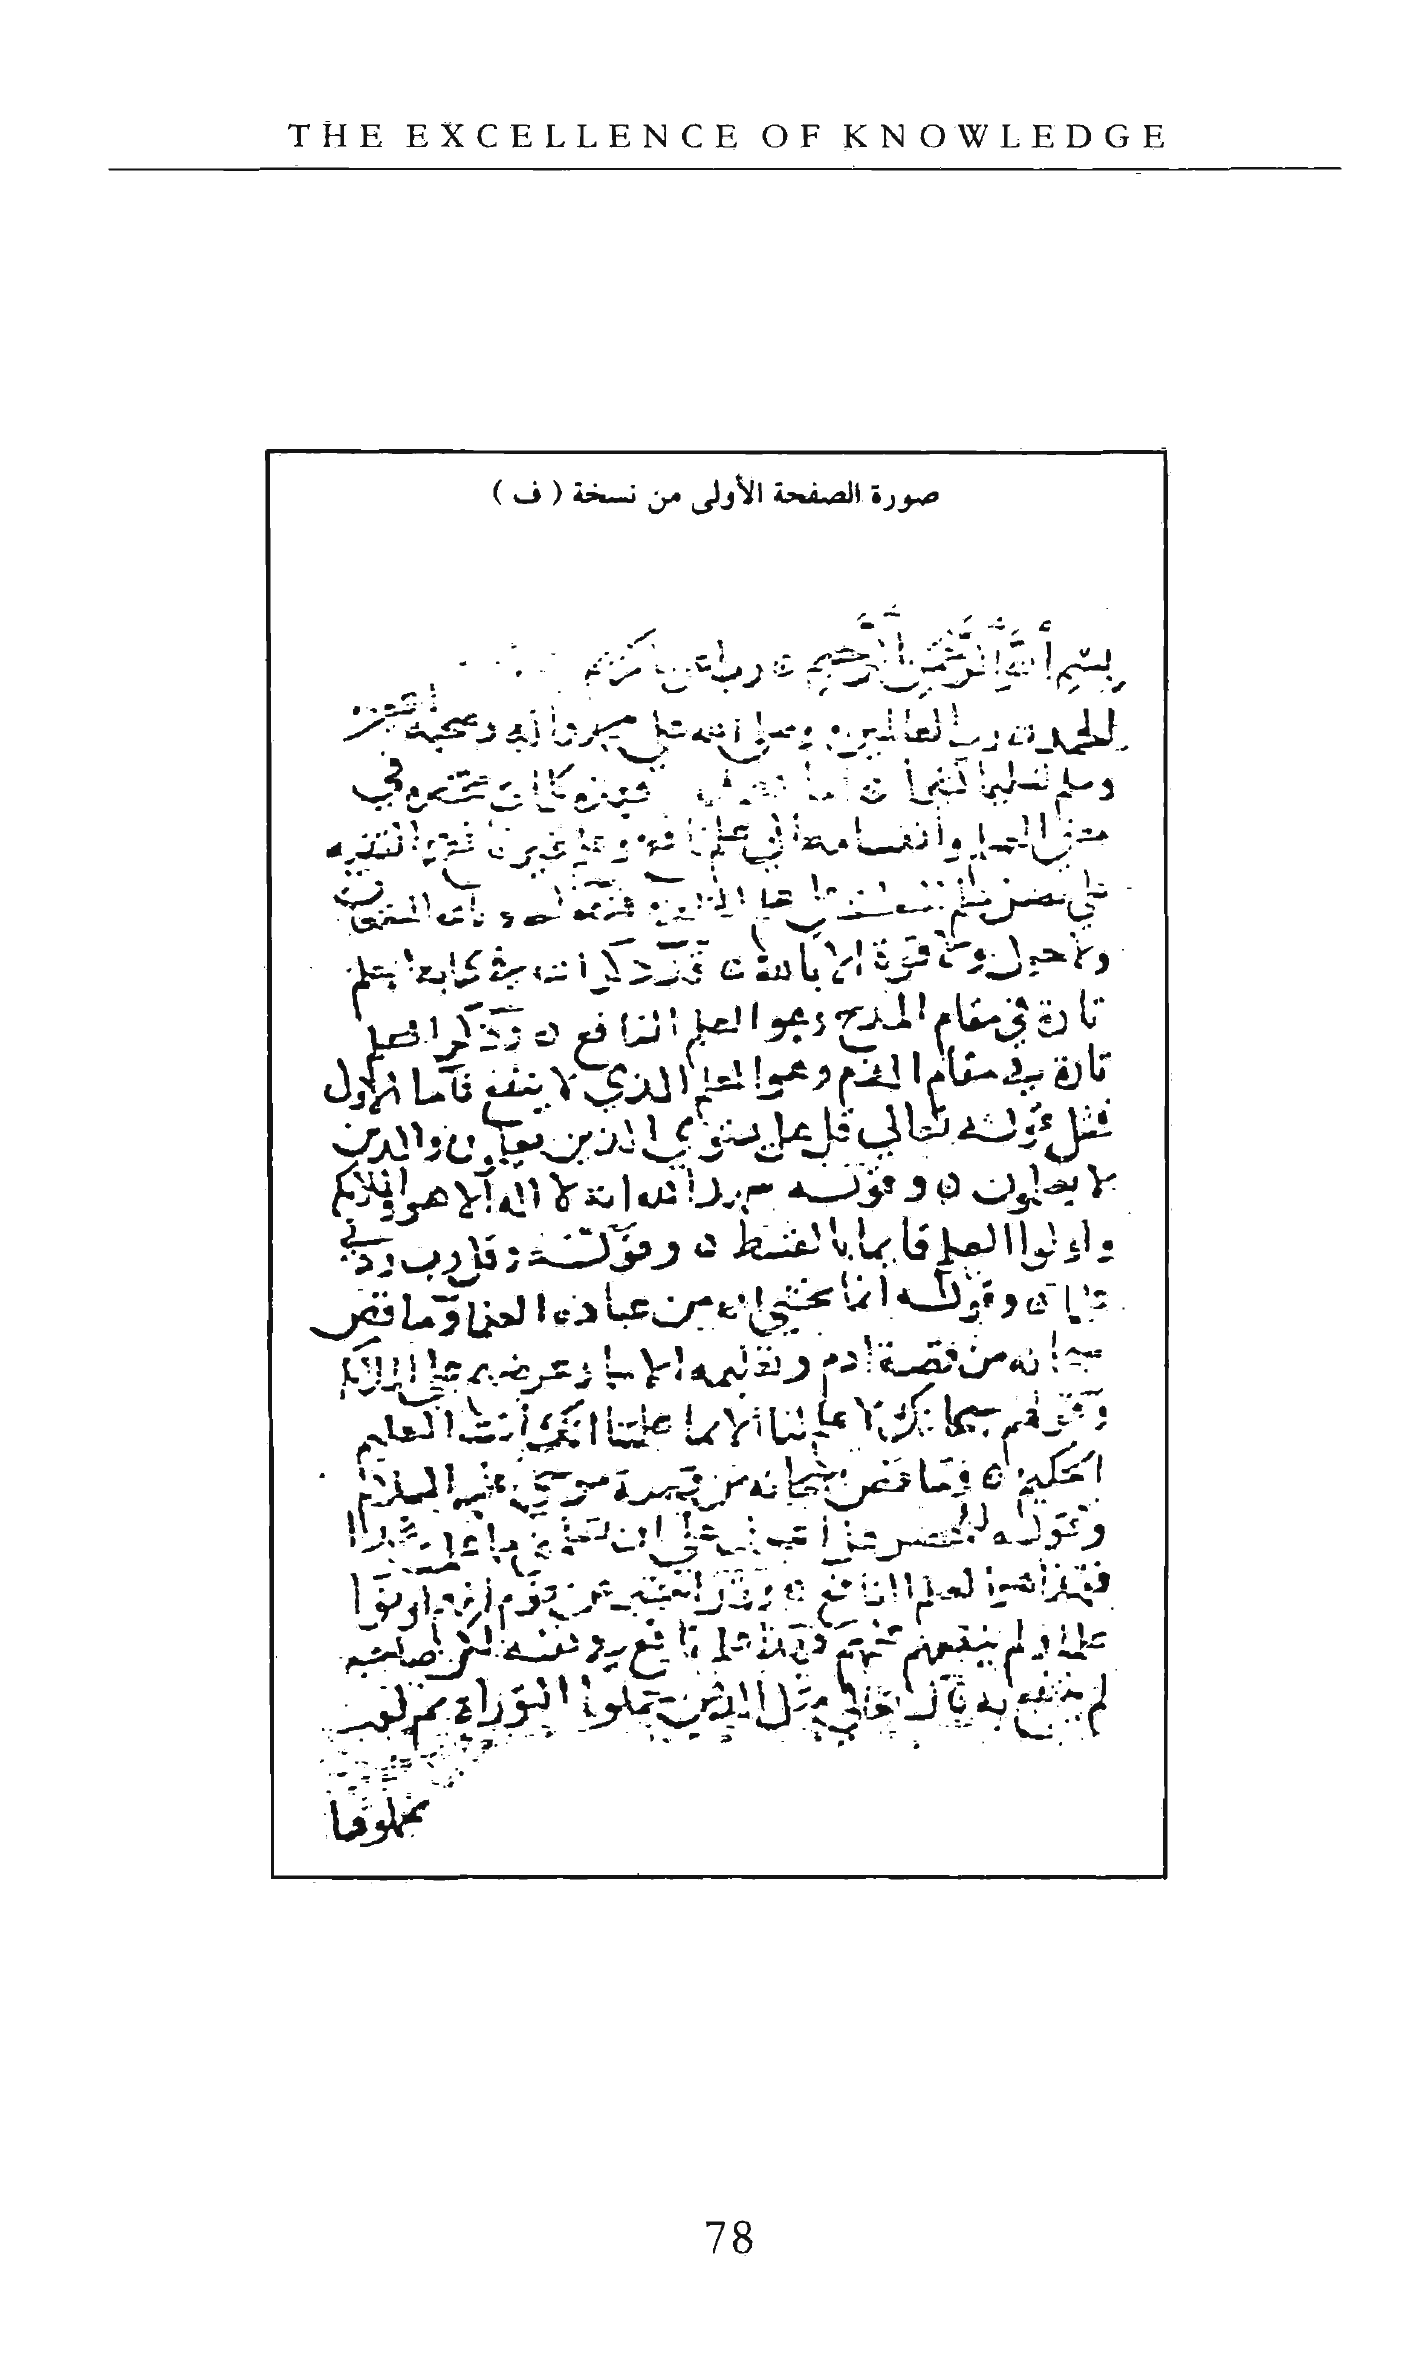 THE EXCELLENCE OF KNOWLEDGE
صورة الصفحة الأولى من نسخة ( ف )
بسم الله الرحمن الرحيم رب اعن يا كريم
الحمد لله رب العالمين وصلى الله على محمد واله وصحبه
وسلم تسليما كثيرا اما بعد فهذه كلمات مختصرة في
معنى العلم وانقسامه الى علم نافع وعلم غير نافع والتنبيه
على فضل علم السلف على علم الخلف فنقول وبالله المستعان
ولا حول ولا قوة الا بالله قد ذكر الله في كتابه العلم
تارة في مقام المدح وهو العلم النافع وذكر العلم
تارة في مقام الذم وهو العلم الذي لا ينفع فاما الاول
فمثل قوله تعالى قل هل يستوي الذين يعلمون والذين
لا يعلمون وقوله شهد الله انه لا اله الا هو والملائكة
واولوا العلم قايما بالقسط وقوله وقل رب زدني
علما وقوله انما يخشى الله من عباده العلما وما قص
سبحانه من قصة ادم وتعليمه الاسما وعرضهم على الملائكة
وقولهم سبحانك لا علم لنا الا ما علمتنا انك أنت العليم
الحكيم وما قص سبحانه من قصة موسى عليه السلام
وقوله للخضر هل أتبعك على ان تعلمني مما علمت رشدا
فهذا هو العلم النافع وقد اخبر عن قوم انهم اوتوا
علما ولم ينفعهم علمهم فهذا علم نافع في نفسه لكن صاحبه
لم ينتفع به قال تعالى مثل الذين حملوا التوراة ثم لم
يحملوها
78